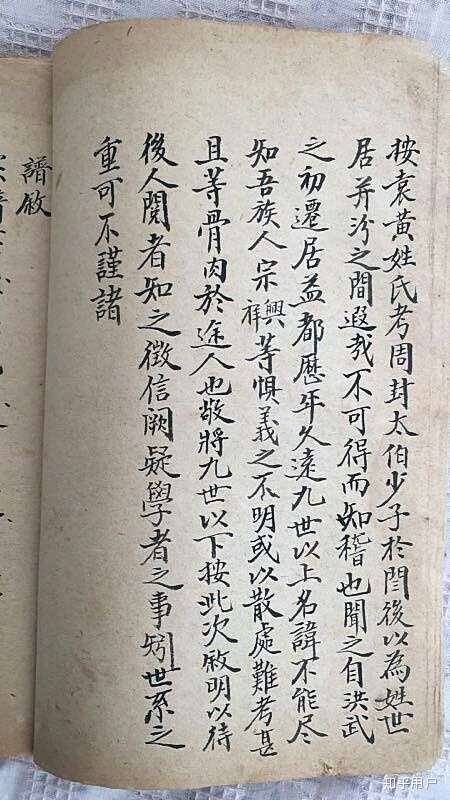 按袁黃姓氏考周封太伯少子於閆後以為姓世
居并汾之間遐哉不可得而知稽也聞之自洪武
之初遷居益都歷年久遠九世以上名諱不能盡
知吾族人宗興祥等惧義之不明或以散處難考甚
且等骨肉於途人也敬將九世以下按此次敘明以待
後人閱者知之徵信闕疑學者之事矧世系之
重可不謹諸
譜敘
知乎用户